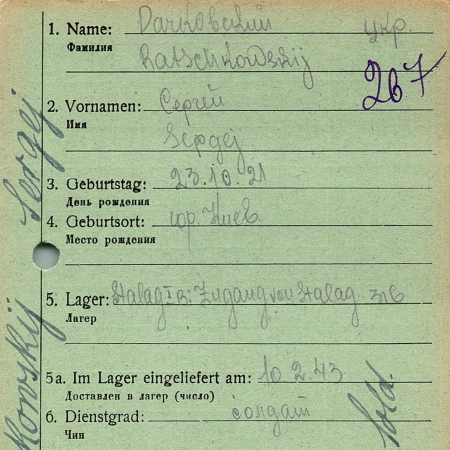 1. Name: Рачковский укр.
Фамилия Ratschkowskij
267
2. Vornamen: Сергей
Имя
Sergej
3. Geburtstag: 23.10.21
День рождения
4. Geburtsort: гор. Киев
Место рождения
5. Lager: Stalag I B: Zugang von Stalag 316
Лагер
5a. Im Lager eingeliefert am: 10.2.43
Доставлен в лагер (число)
6. Dienstgrad: солдат
Чин
Sold.
Sergej
kowskij